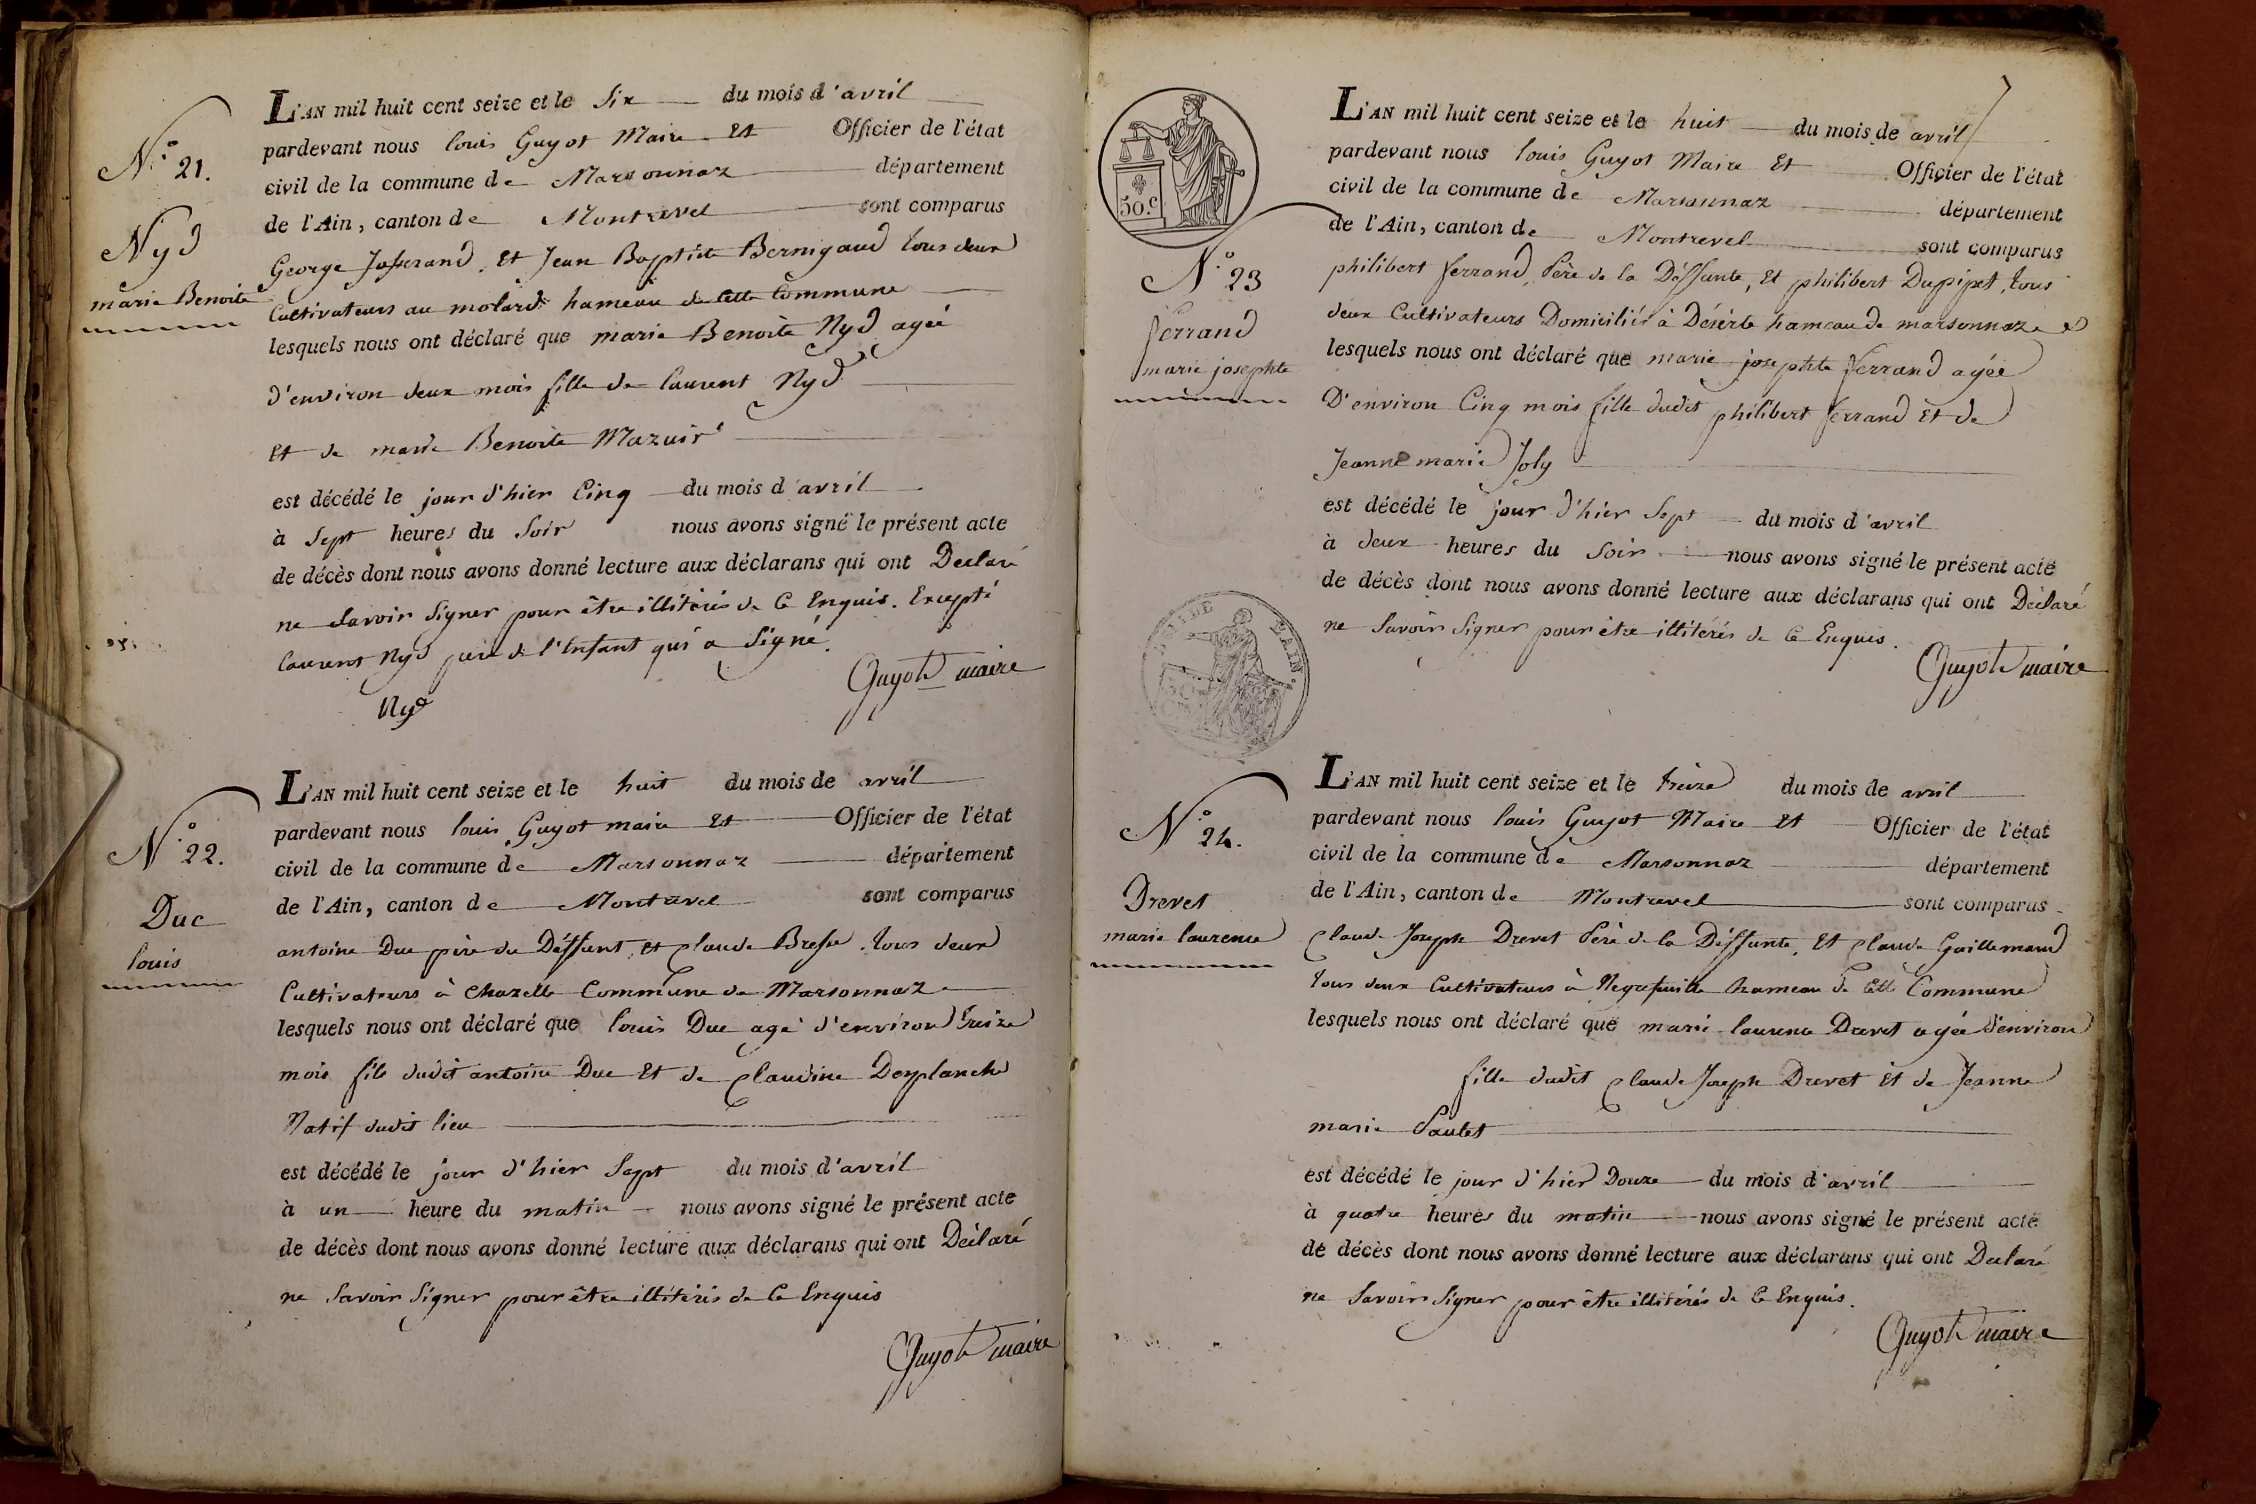 N.° 21.
Nyd
marie Benoite
L'AN mil huit cent seize et le Six du mois d'avril
pardevant nous louis Guyot Maire Et Officier de l'état
civil de la commune de Marsonnaz département
de l'Ain, canton de Montrevel sont comparus
George Josserand, Et Jean Baptiste Bernigaud tous deux
Cultivateurs au molards hameau de Cette Commune
lesquels nous ont déclaré que marie Benoite Nyd agée
d'environ deux mois fille de laurent Nyd
Et de marie Benoite Mazuir
est décédé le jour d'hier Cinq du mois d'avril
à Sept heures du Soir nous avons signé le présent acte
de décès dont nous avons donné lecture aux déclarans qui ont Declaré
ne Savoir Signer pour être illitérés de Ce Enquis. Excepté
laurent Nyd père de l'Enfant qui a Signé.
Guyot maire
Nyd
N.° 22.
Duc
louis
L'AN mil huit cent seize et le huit du mois de avril
pardevant nous louis Guyot maire Et Officier de l'état
civil de la commune de Marsonnaz département
de l'Ain, canton de Montrevel sont comparus
antoine Duc père du Déffunt, et Claude Bresse. tous deux
Cultivateurs à Chazelle Commune de Marsonnaz
lesquels nous ont déclaré que louis Duc agé d'environ treize
mois fils dudit antoine Duc Et de Claudine Desplanche
Natif dudit lieu
est décédé le jour d'hier Sept du mois d'avril
à un heure du matin nous avons signé le présent acte
de décès dont nous avons donné lecture aux déclarans qui ont Déclaré
ne Savoir Signer pour être illitérés de Ce Enquis
Guyot maire
50.C
N.° 23
ferrand
marie josephte
L'AN mil huit cent seize et le huit du mois de avril
pardevant nous louis Guyot Maire Et Officier de l'état
civil de la commune de Marsonnaz département
de l'Ain, canton de Montrevel sont comparus
philibert ferrand, Père de la Déffunte, Et philibert Dupipet, tous
deux Cultivateurs Domiciliés à Déserte hameau de marsonnaz
lesquels nous ont déclaré que marie josephte ferrand agée
D'environ Cinq mois fille dudit philibert ferrand Et de
Jeanne marie Joly
est décédé le jour d'hier Sept du mois d'avril
à deux heures du Soir nous avons signé le présent acte
de décès dont nous avons donné lecture aux déclarans qui ont Déclaré
ne Savoir Signer pour être illitérés de Ce Enquis.
Guyot maire
N.° 24.
Drevet
marie laurence
L'AN mil huit cent seize et le treize du mois de avril
pardevant nous louis Guyot Maire Et Officier de l'état
civil de la commune de Marsonnaz département
de l'Ain, canton de Montrevel sont comparus
Claude Joseph Drevet Père de la Déffunte, Et Claude Guillemaud
tous deux Cultivateurs à Negrefeuille hameau de Cette Commune
lesquels nous ont déclaré que marie laurence Drevet agée d'environ
fille dudit Claude Joseph Drevet Et de Jeanne
marie Paulet
est décédé le jour d'hier Douze du mois d'avril
à quatre heures du matin nous avons signé le présent acte
de décès dont nous avons donné lecture aux déclarans qui ont Declaré
ne Savoir Signer pour être illitérés de Ce Enquis.
Guyot maire